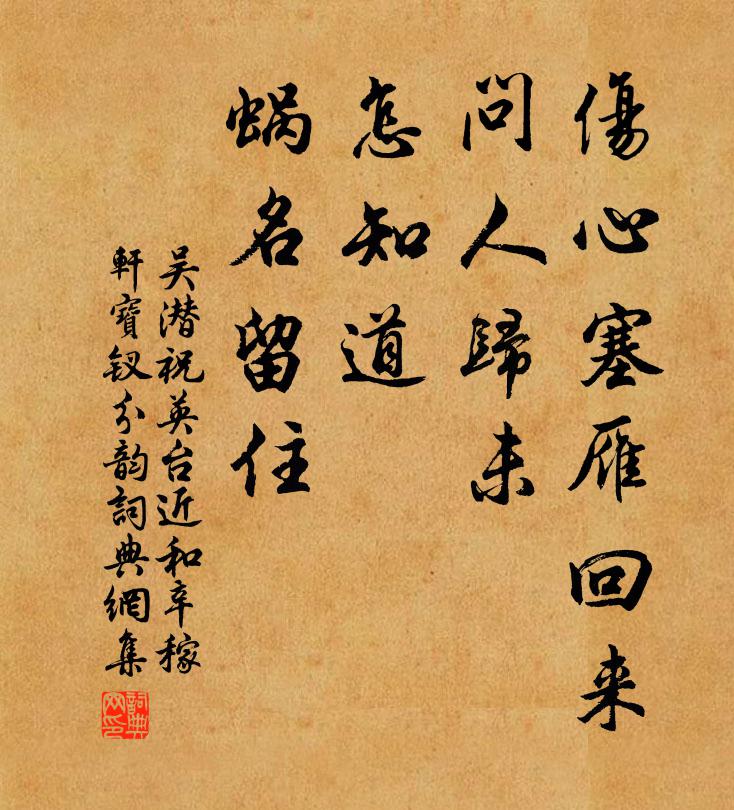 傷心塞雁回来
問人歸未
怎知道
蝸名留住
吴潜祝英台近和辛稼
軒寶钗分韵詞典網集
詞典
网印